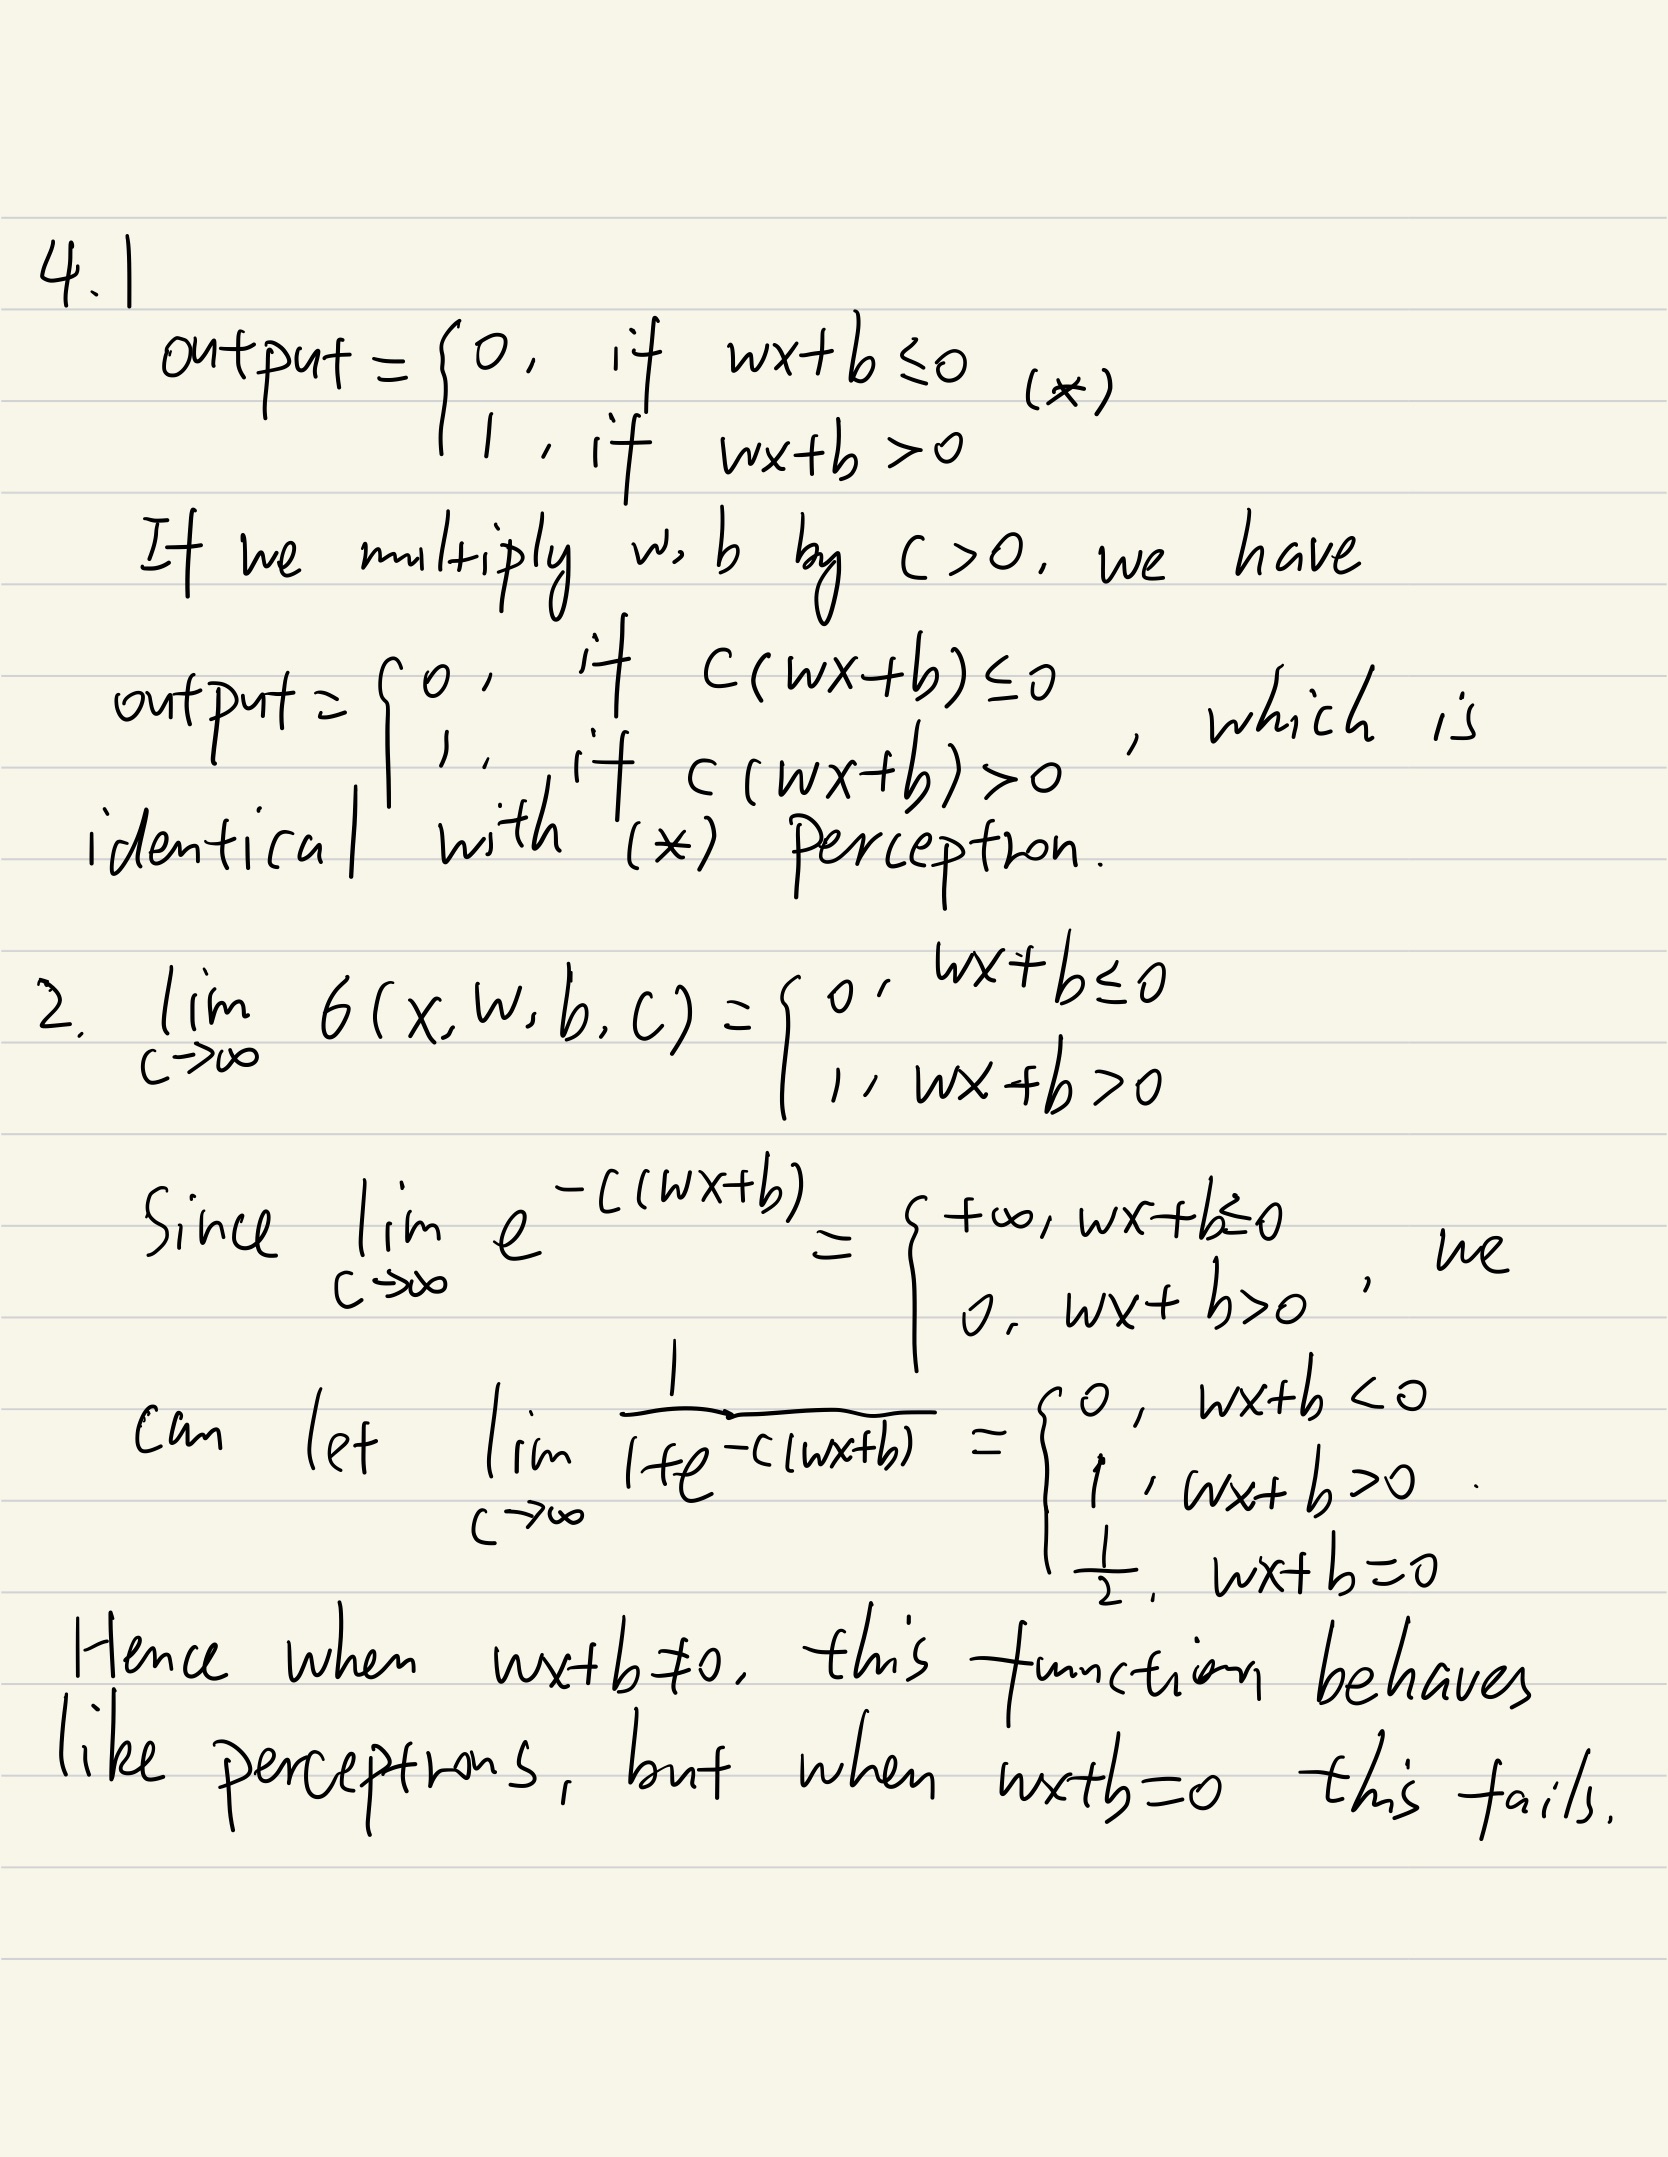 4.1
output = { 0, if wx+b ≤ 0
1, if wx+b > 0 (*)
If we multiply w, b by c > 0, we have
output = { 0, if c(wx+b) ≤ 0
1, if c(wx+b) > 0 , which is
identical with (*) perceptron.
2. lim c→∞ 6(x, w, b, c) = { 0, wx+b ≤ 0
1, wx+b > 0
Since lim c→∞ e^{-c(wx+b)} = { +∞, wx+b ≤ 0
0, wx+b > 0 , we
can let lim c→∞ 1/(1+e^{-c(wx+b)}) = { 0, wx+b < 0
1, wx+b > 0 .
1/2, wx+b = 0
Hence when wx+b ≠ 0, this function behaves
like perceptrons, but when wx+b = 0 this fails.